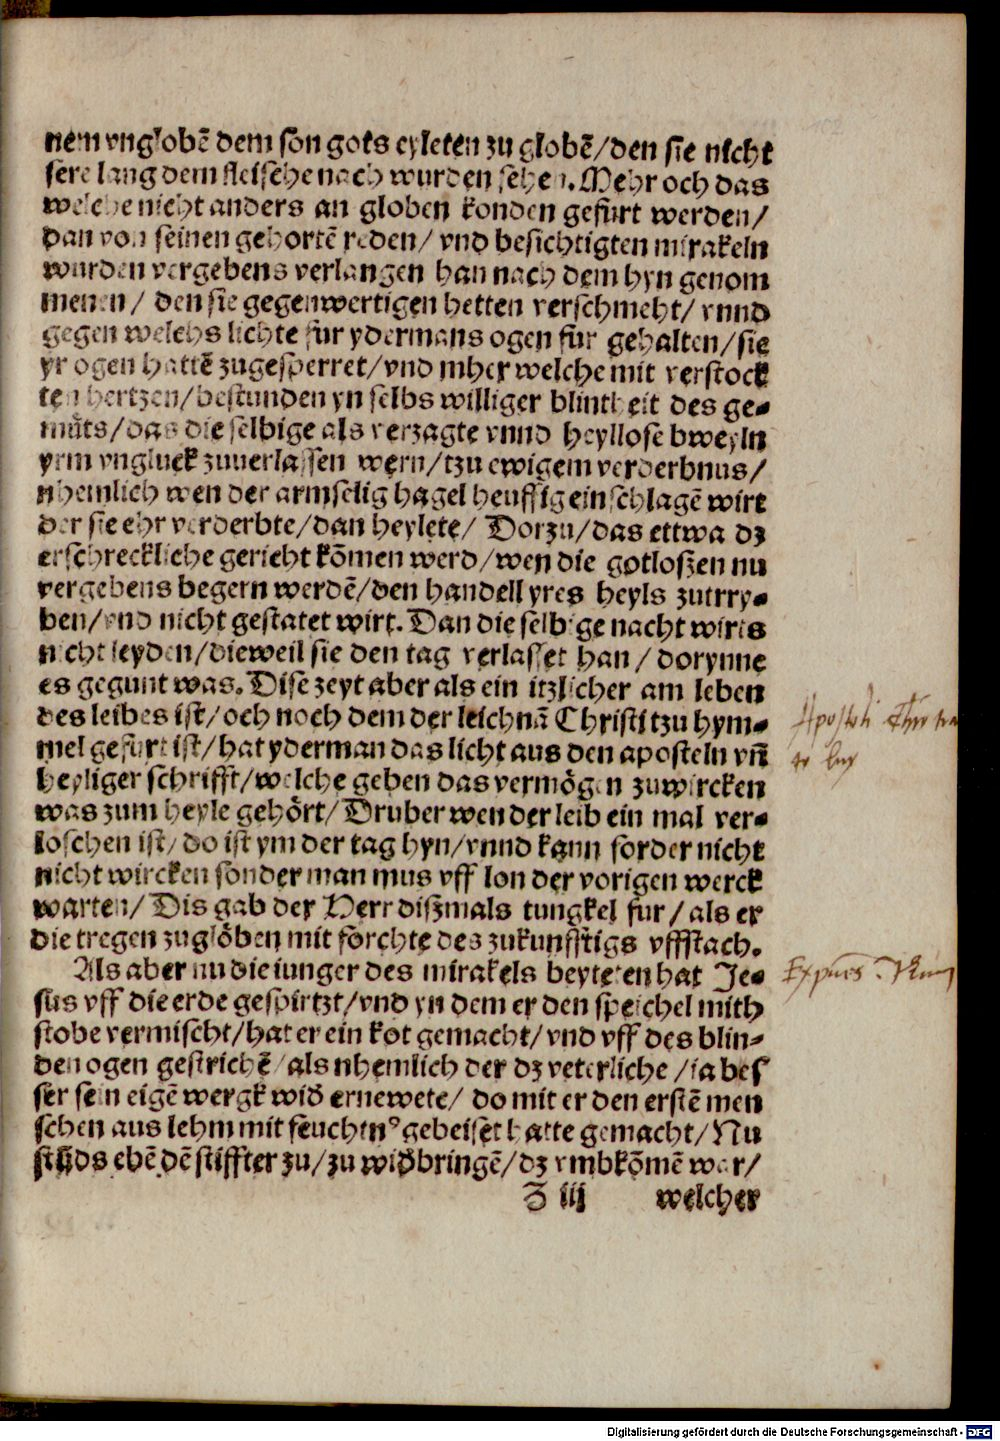 nem vngлobē dem son gots eyleten zu globē/den sie nicht
sere lang dem fleische nach wurden sehen. Mehr och das
welche nicht anders an globen konden gefurt werden/
dan von seinen gehortē reden/ vnd besichtigten mirakeln
wurden vergebens verlangen han nach dem hyn genom
menen/ den sie gegenwertigen hetten verschmeht/ vnnd
gegen welchs lichte fur ydermans ogen fur gehalten/sie
yr ogen hattē zugesperret/vnd mher welche mit verstock
ten hertzen/bestunden yn selbs williger blintheit des ge-
muts/das die selbige als verzagte vnnd heyllose bweyln
yrm vngluck zuuerlassen wern/tzu ewigem verderbnus/
nhemlich wen der armselig hagel heuffig einschlagē wirt
der sie ehr verderbte/dan heylete/ Dorzu/das ettwa dz
erschreckliche gericht kōmen werd/wen die gotloszen nu
vergebens begern werdē/den handell yres heyls zutrry-
ben/vnd nicht gestatet wirt. Dan die selbige nacht wirts
nicht leyden/dieweil sie den tag verlasset han/ dorynne
es gegunt was. Dise zeyt aber als ein itzlicher am leben
des leibes ist/och noch dem der leichnā Christi tzu hym-
mel gefurt ist/hat yderman das licht aus den aposteln vñ
heyliger schrifft/welche geben das vermögen zuwircken
was zum heyle gehört/Druber wen der leib ein mal ver-
loschen ist/do ist ym der tag hyn/vnnd kann forder nicht
nicht wircken sonder man mus vff lon der vorigen werck
warten/ Dis gab der Herr diszmals tungkel fur/als er
die tregen zuglöben mit forchte des zukunfftigs vffstach.
Als aber nu die iunger des mirakels beyteten hat Je-
sus vff die erde gespirtzt/vnd yn dem er den speichel mith
stobe vermischt/hat er ein kot gemacht/vnd vff des blin-
den ogen gestrichē/als nhemlich der dz veterliche/ia bes
ser sein eigē wergk wid ernewete/ do mit er den erstē men
schen aus lehm mit feuchtn⁹ gebeiset hatte gemacht/Nu
stūds ebē dē stiffter zu/zu widbringē/dz vmbkōmē war/
Z iij welcher
Apostoli
Digitalisierung gefördert durch die Deutsche Forschungsgemeinschaft - DFG